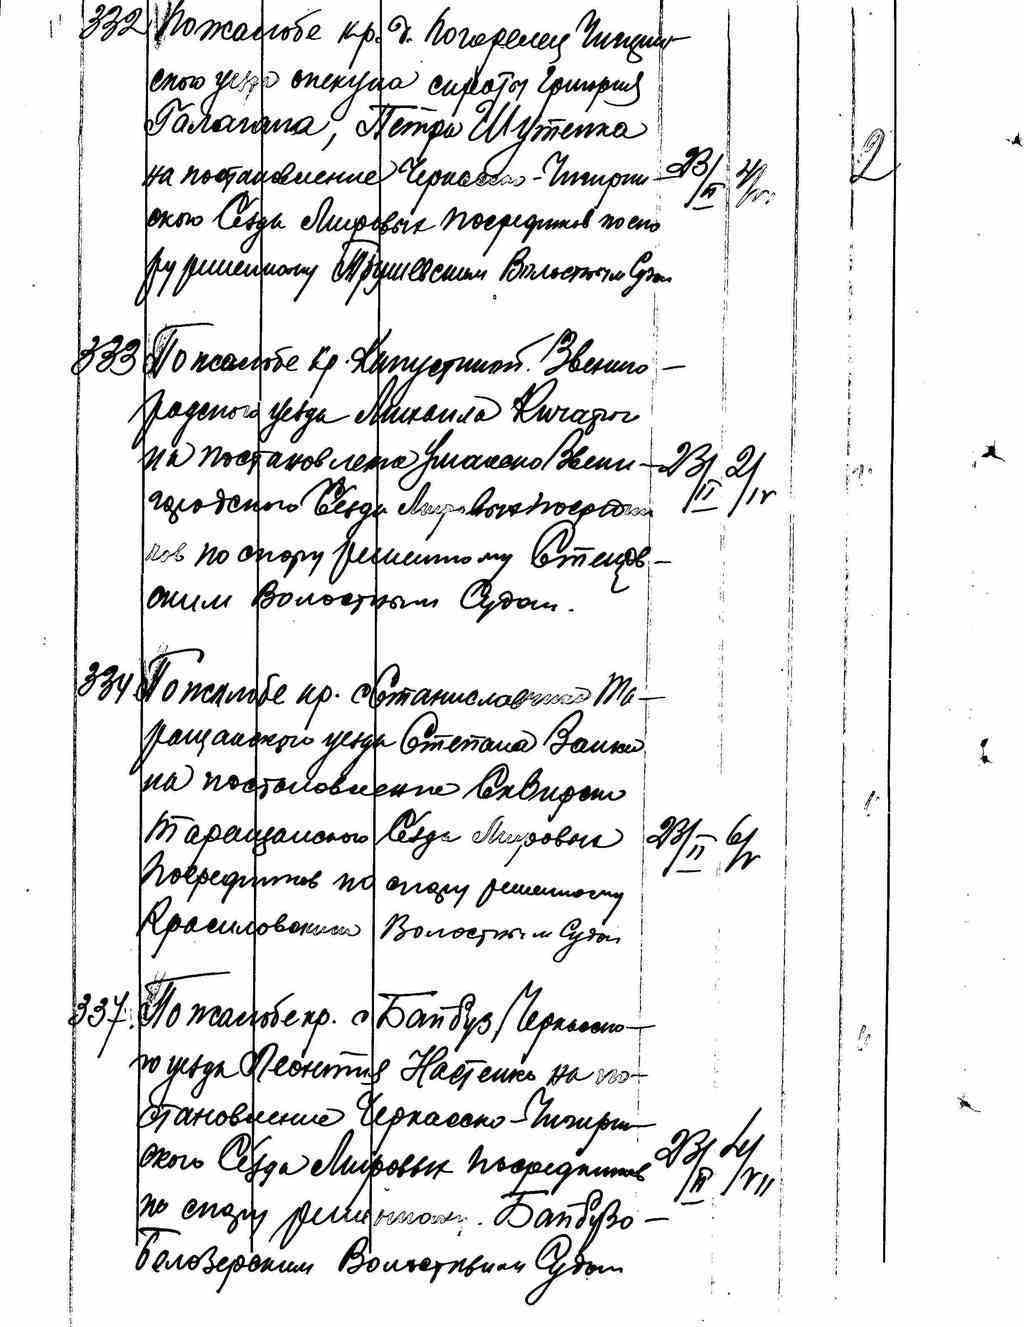 332 По жалобе кр. д. Погорелец Чигирин-
ского уезда опекуна сироты Григория
Галагана, Петра Шутенка
на постановление Черкасско-Чигирин- 23/II 4/
ского Сезда Мировых Посредников по спо
ру решенному Трушевским Волостным Судом
2
333 По жалобе кр. Капустиной. Звениго-
радского уезда Михаила
на постановление Уманско Звени- 23/II 2/IV
городского Сезда Мировых посредни
ков по спору решенному Стецов-
ским Волостным Судом.
334 По жалобе кр. с Станиславчика Та-
ращанского уезда Степана Заики
на постановление Сквирско
Таращанского Сезда Мировых 23/II 6/V
Посредников по спору решенному
Красиловским Волостным Судом
337. По жалобе кр. с Байбуз Черкасско-
го уезда Леонтия Настенко на по-
становление Черкасско-Чигирин
ского Сезда Мировых Посредников 23/II 4/VII
по спору решенному. Байбузо-
Белозерским Волостным Судом